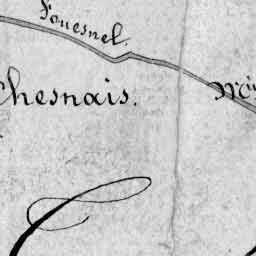 Fouesnel.
Chesnais.